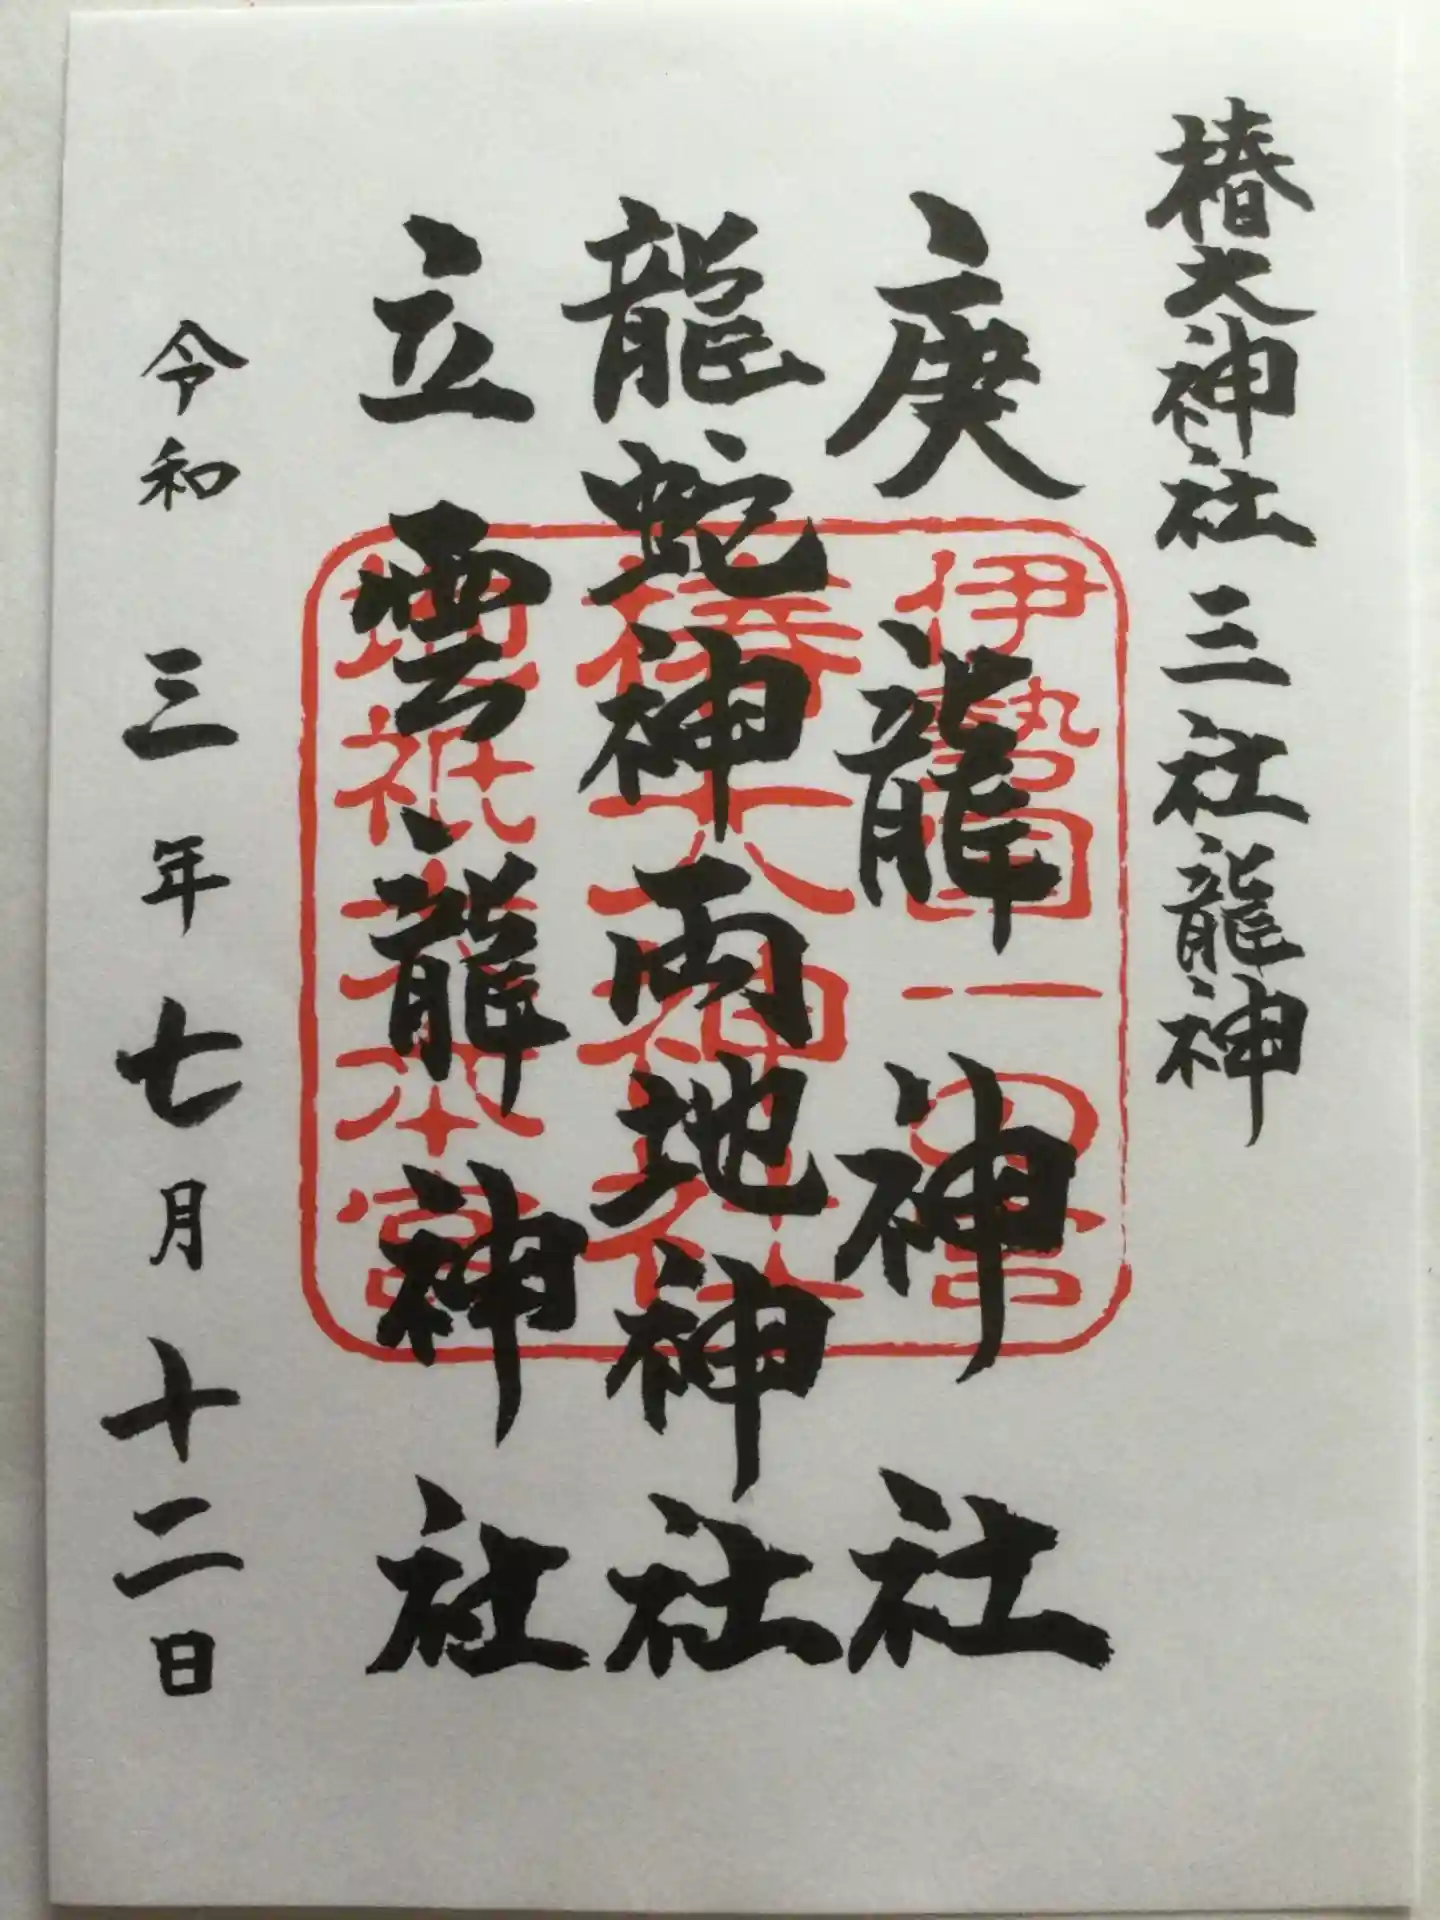 椿大神社 三社龍神
庚龍神社
龍蛇神両地神社
立雲龍神社
令和三年七月十二日
伊勢国一の宮
椿大神社
地祇大本宮